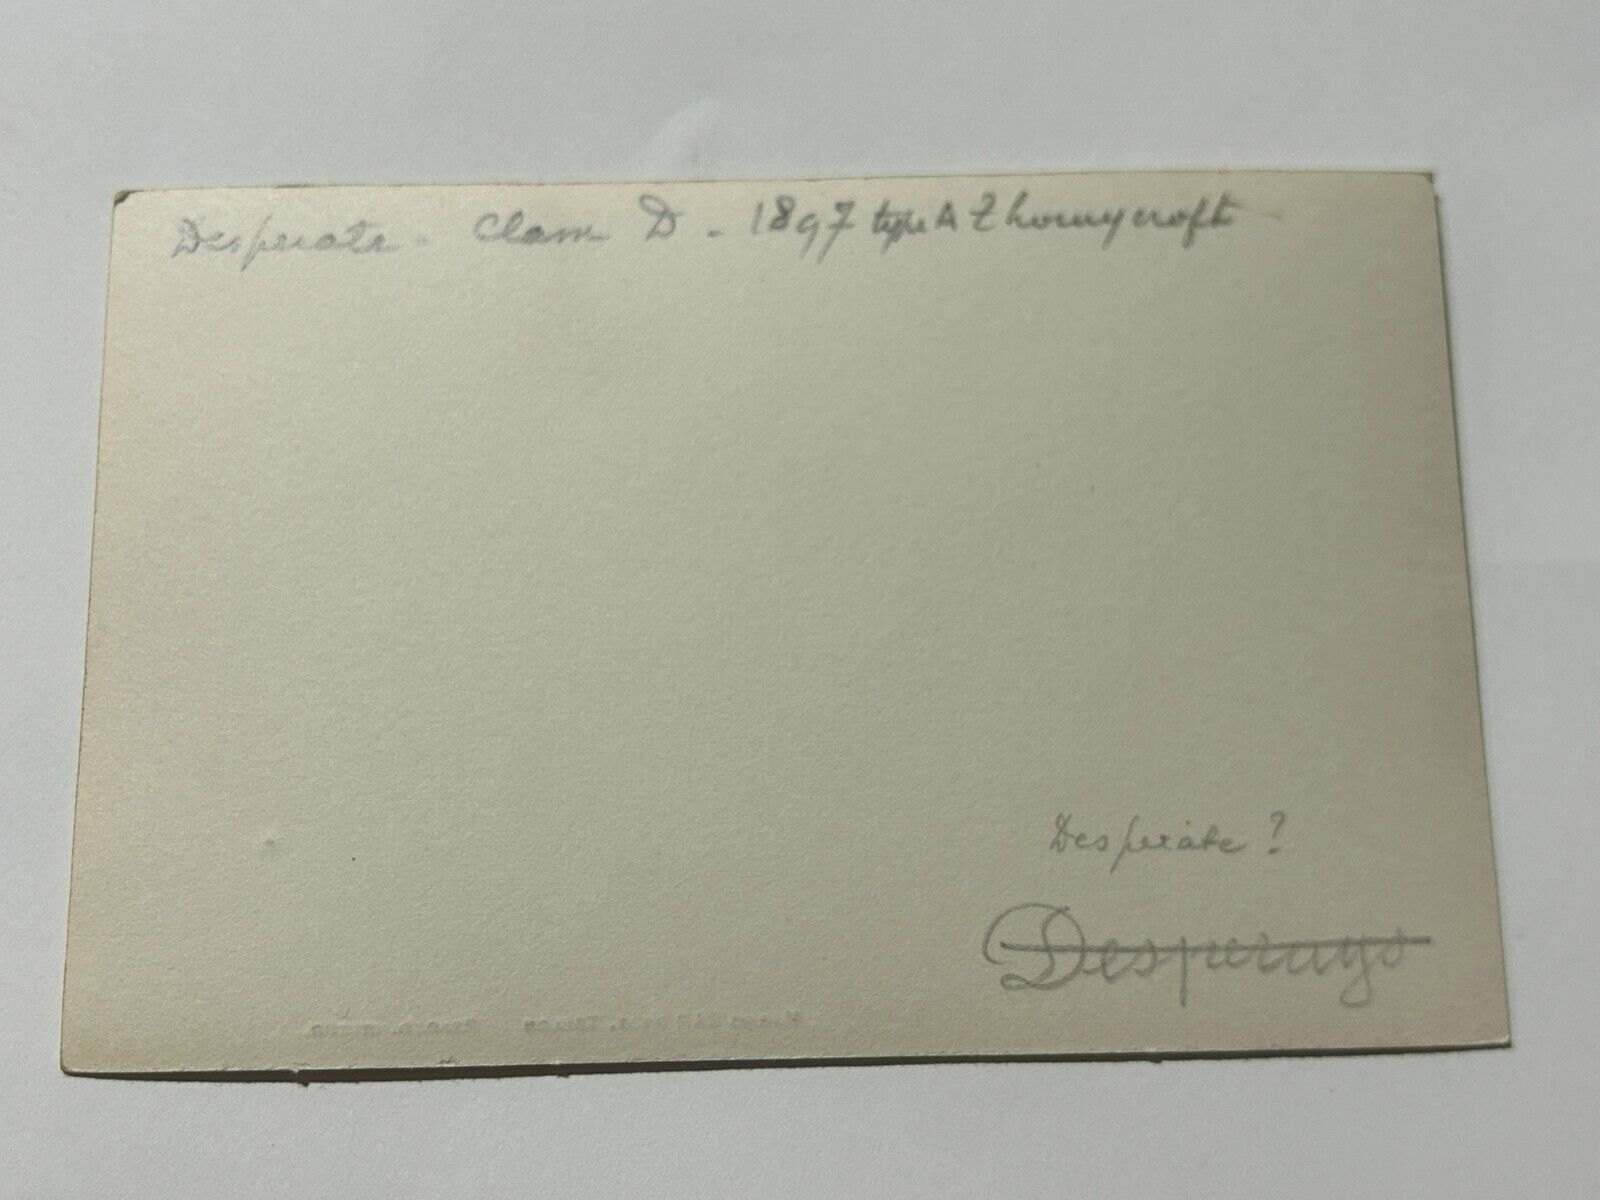 Desperate - Class D - 1897 type A Thornycroft
Desperate ?